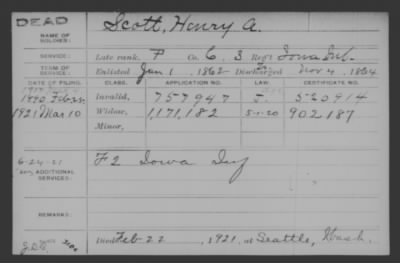 DEAD
NAME OF SOLDIER:
Scott, Henry A.
SERVICE:
Late rank, P Co. C, 3 Reg't Iowa Inf.
TERM OF SERVICE:
Enlisted Jan 1, 1862 Discharged Nov 4, 1864
DATE OF FILING. CLASS. APPLICATION NO. LAW. CERTIFICATE NO.
1890 Invalid, 757947
1921 Mar 10 Widow, 1,171,182 5-1-20 902187
Minor,
6-24-21
ADDITIONAL SERVICES:
F 2 Iowa Inf
REMARKS:
Died Feb 22, 1921, at Seattle, Wash.